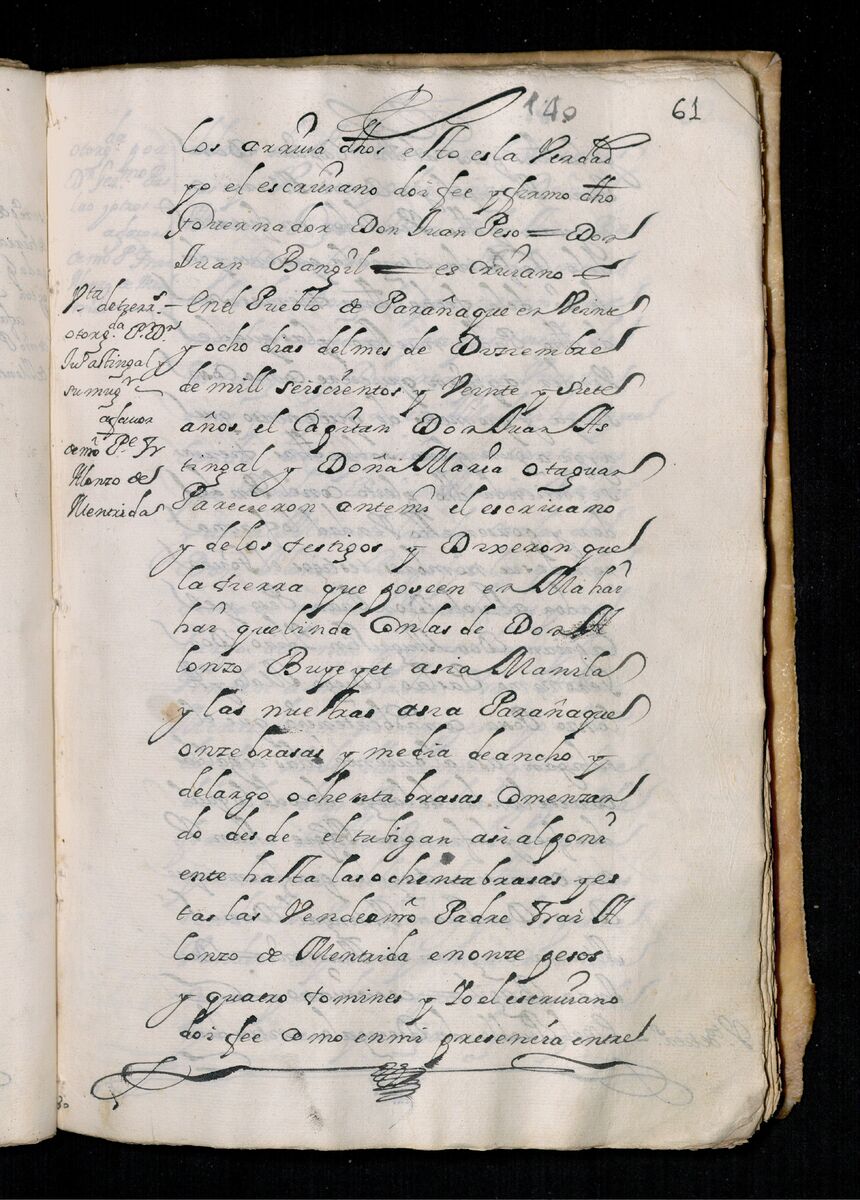 140
61
los arriua dhos esto es la Verdad
yo el escriuano doi fee y firmo dho
Gouernador Don Juan Peso = Don
Juan Bangil = escriuano =
Vta. de tierrs.
otorgda. Pr. Dn.
Jun. Astingal y
su mugr.
a fauor
de nro. Pe. Fr
Alonzo de
Mentrida
En el Pueblo de Parañaque en Veinte
y ocho dias del mes de Diziembre
de mill seiscientos y Veinte y siete
años el Capitan Don Juan As
tingal y Doña Maria otaguan
Parecieron ante mi el escriuano
y de los testigos y Dixeron que
la tierra que poseen en Mahai
hai que linda con las de Don A
lonzo Buyeyet asia Manila
y las nuestras asia Parañaque
onze brasas y media de ancho y
de largo ochenta brasas Comenzan
do desde el tubigan asia el poni
ente hasta las ochenta brasas y es
tas las Vende a nro Padre Frai A
lonzo de Mentrida en onze pesos
y quatro tomines y Yo el escriuano
doi fee Como en mi presencia entre